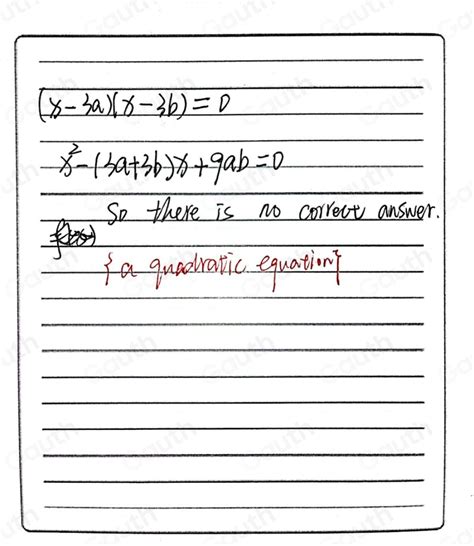 (x-3a)(x-3b)=0
x²-(3a+3b)x+9ab=0
So there is no correct answer.
{a quadratic equation}